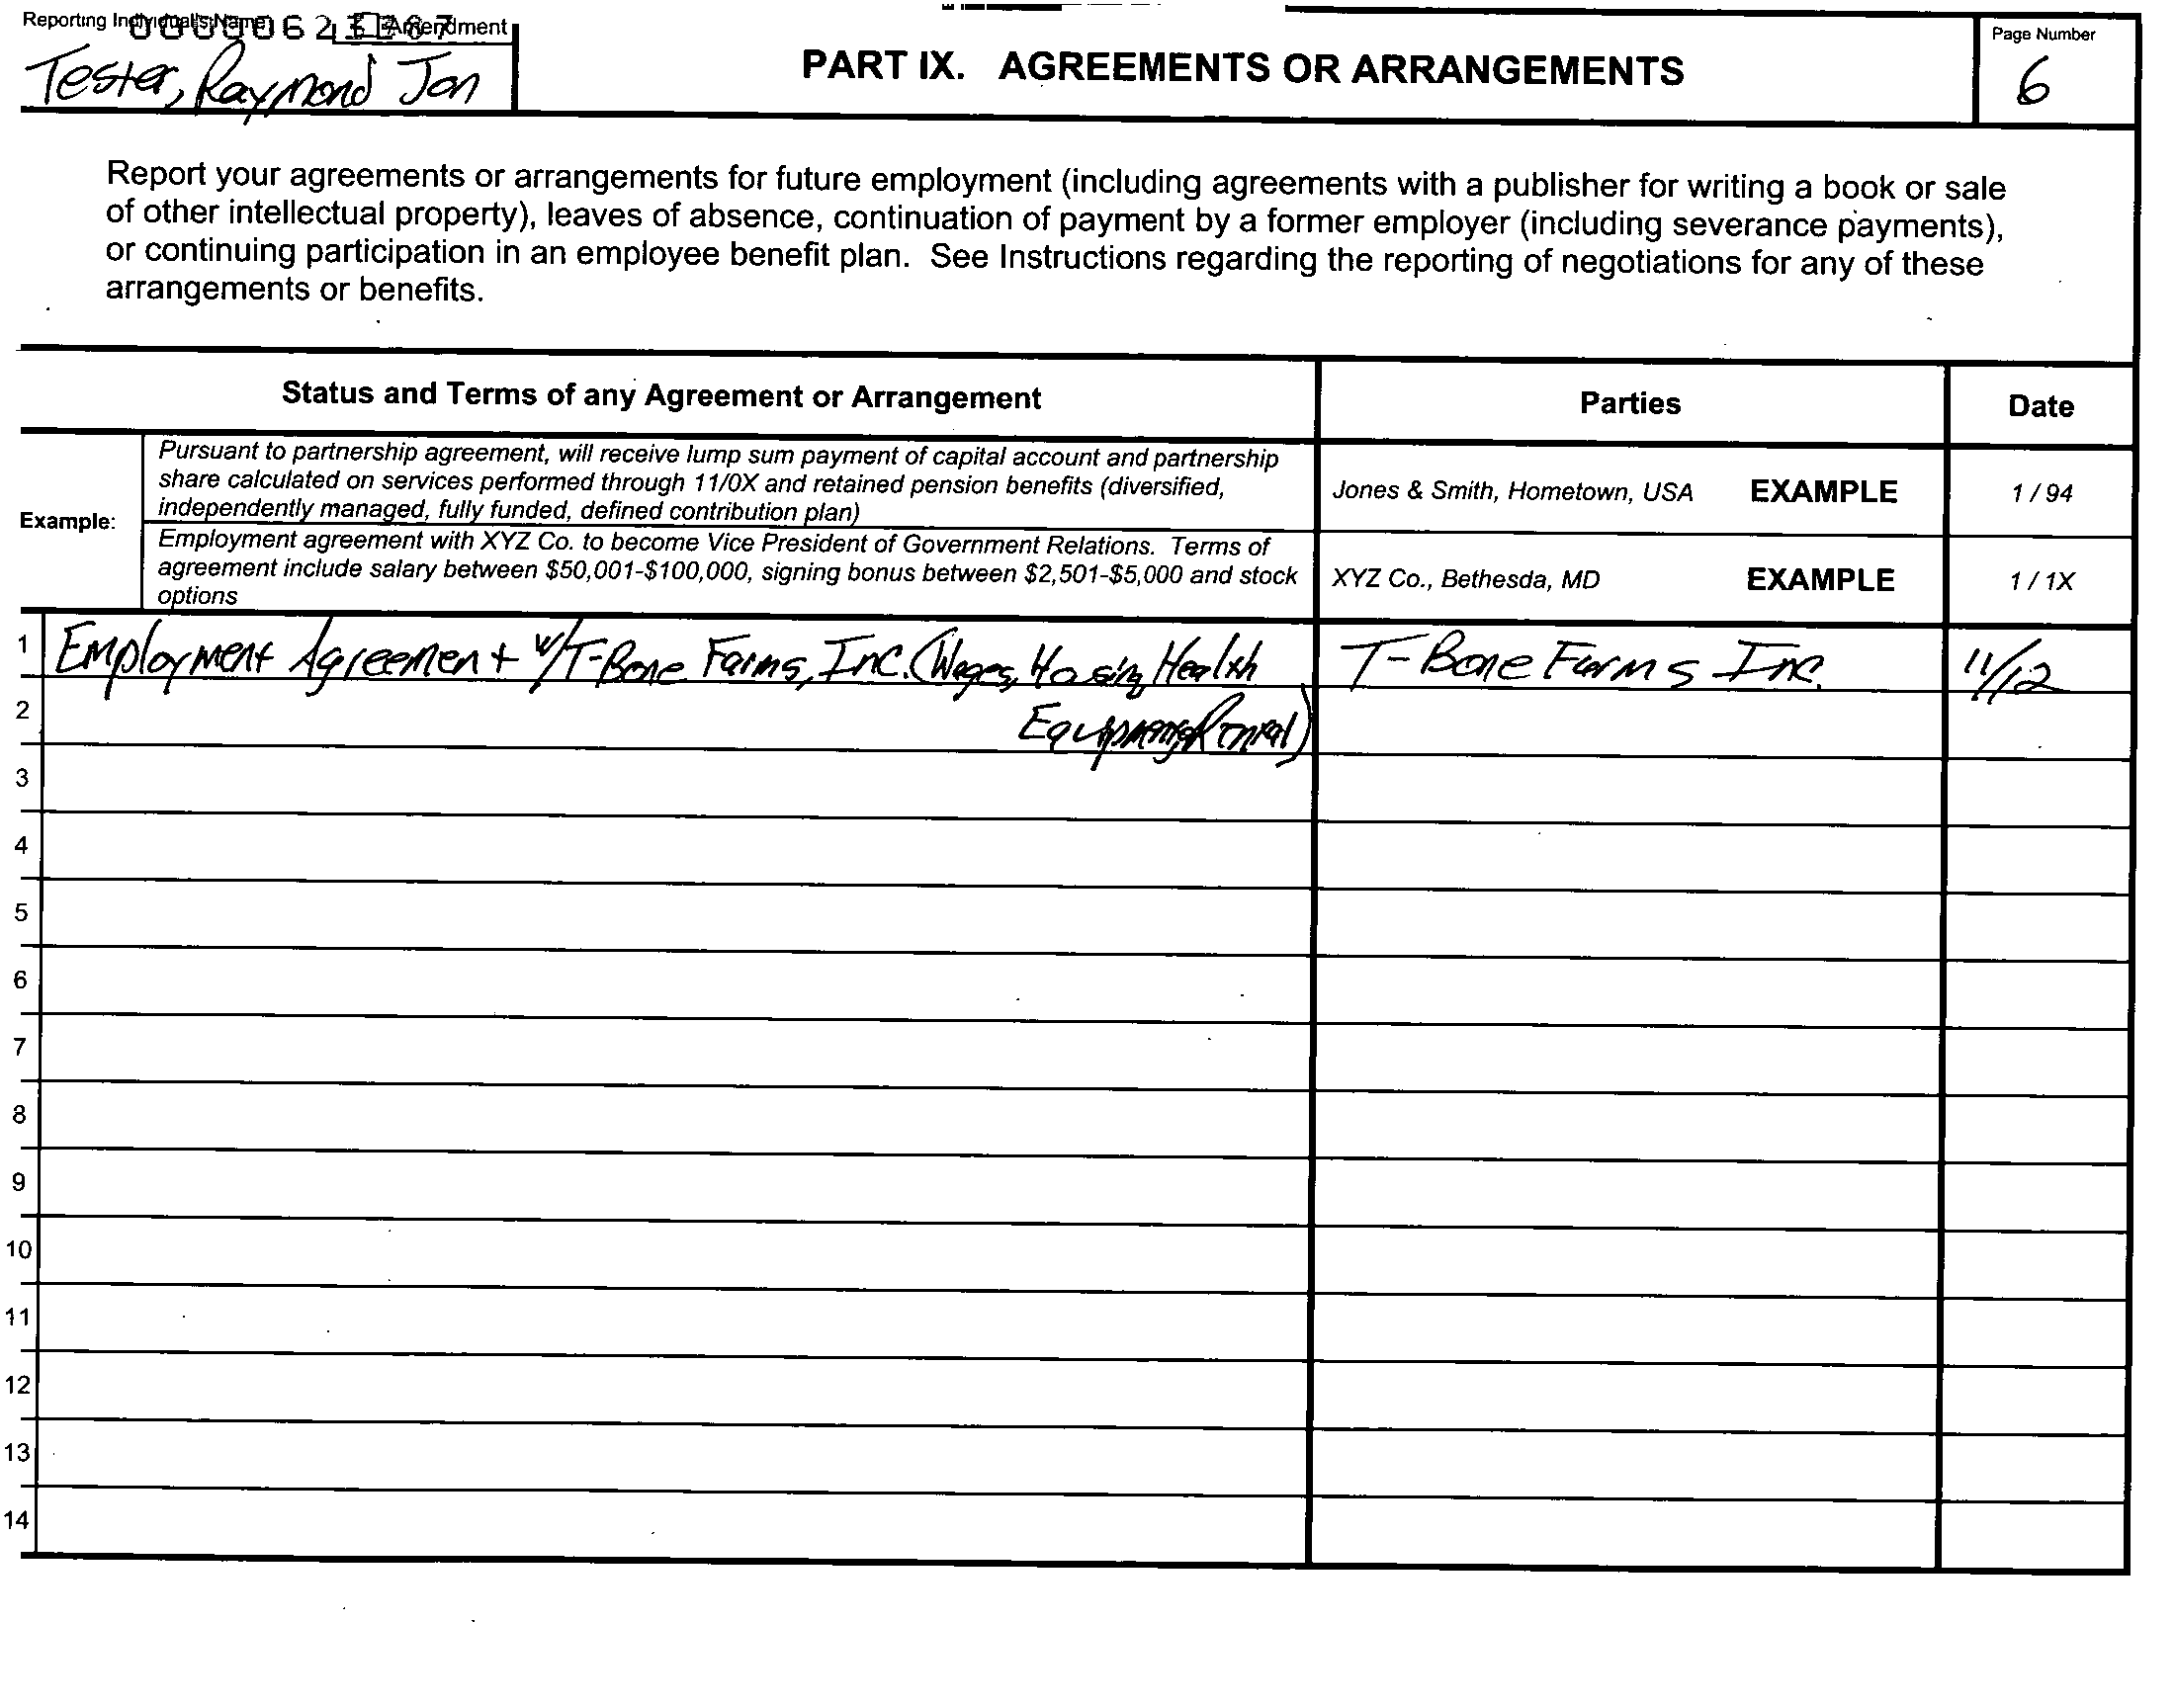 Reporting Individual's Name
Amendment
Tester, Raymond Jon
PART IX. AGREEMENTS OR ARRANGEMENTS
Page Number
6
Report your agreements or arrangements for future employment (including agreements with a publisher for writing a book or sale
of other intellectual property), leaves of absence, continuation of payment by a former employer (including severance payments),
or continuing participation in an employee benefit plan. See Instructions regarding the reporting of negotiations for any of these
arrangements or benefits.
Status and Terms of any Agreement or Arrangement Parties Date
Example:
Pursuant to partnership agreement, will receive lump sum payment of capital account and partnership
share calculated on services performed through 11/0X and retained pension benefits (diversified,
independently managed, fully funded, defined contribution plan)
Jones & Smith, Hometown, USA EXAMPLE 1 / 94
Employment agreement with XYZ Co. to become Vice President of Government Relations. Terms of
agreement include salary between $50,001-$100,000, signing bonus between $2,501-$5,000 and stock
options
XYZ Co., Bethesda, MD EXAMPLE 1 / 1X
1 Employment Agreement w/T-Bone Farms, Inc. (Wages, Hosing, Health T-Bone Farms Inc. 11/12
2 Rental)
3
4
5
6
7
8
9
10
11
12
13
14